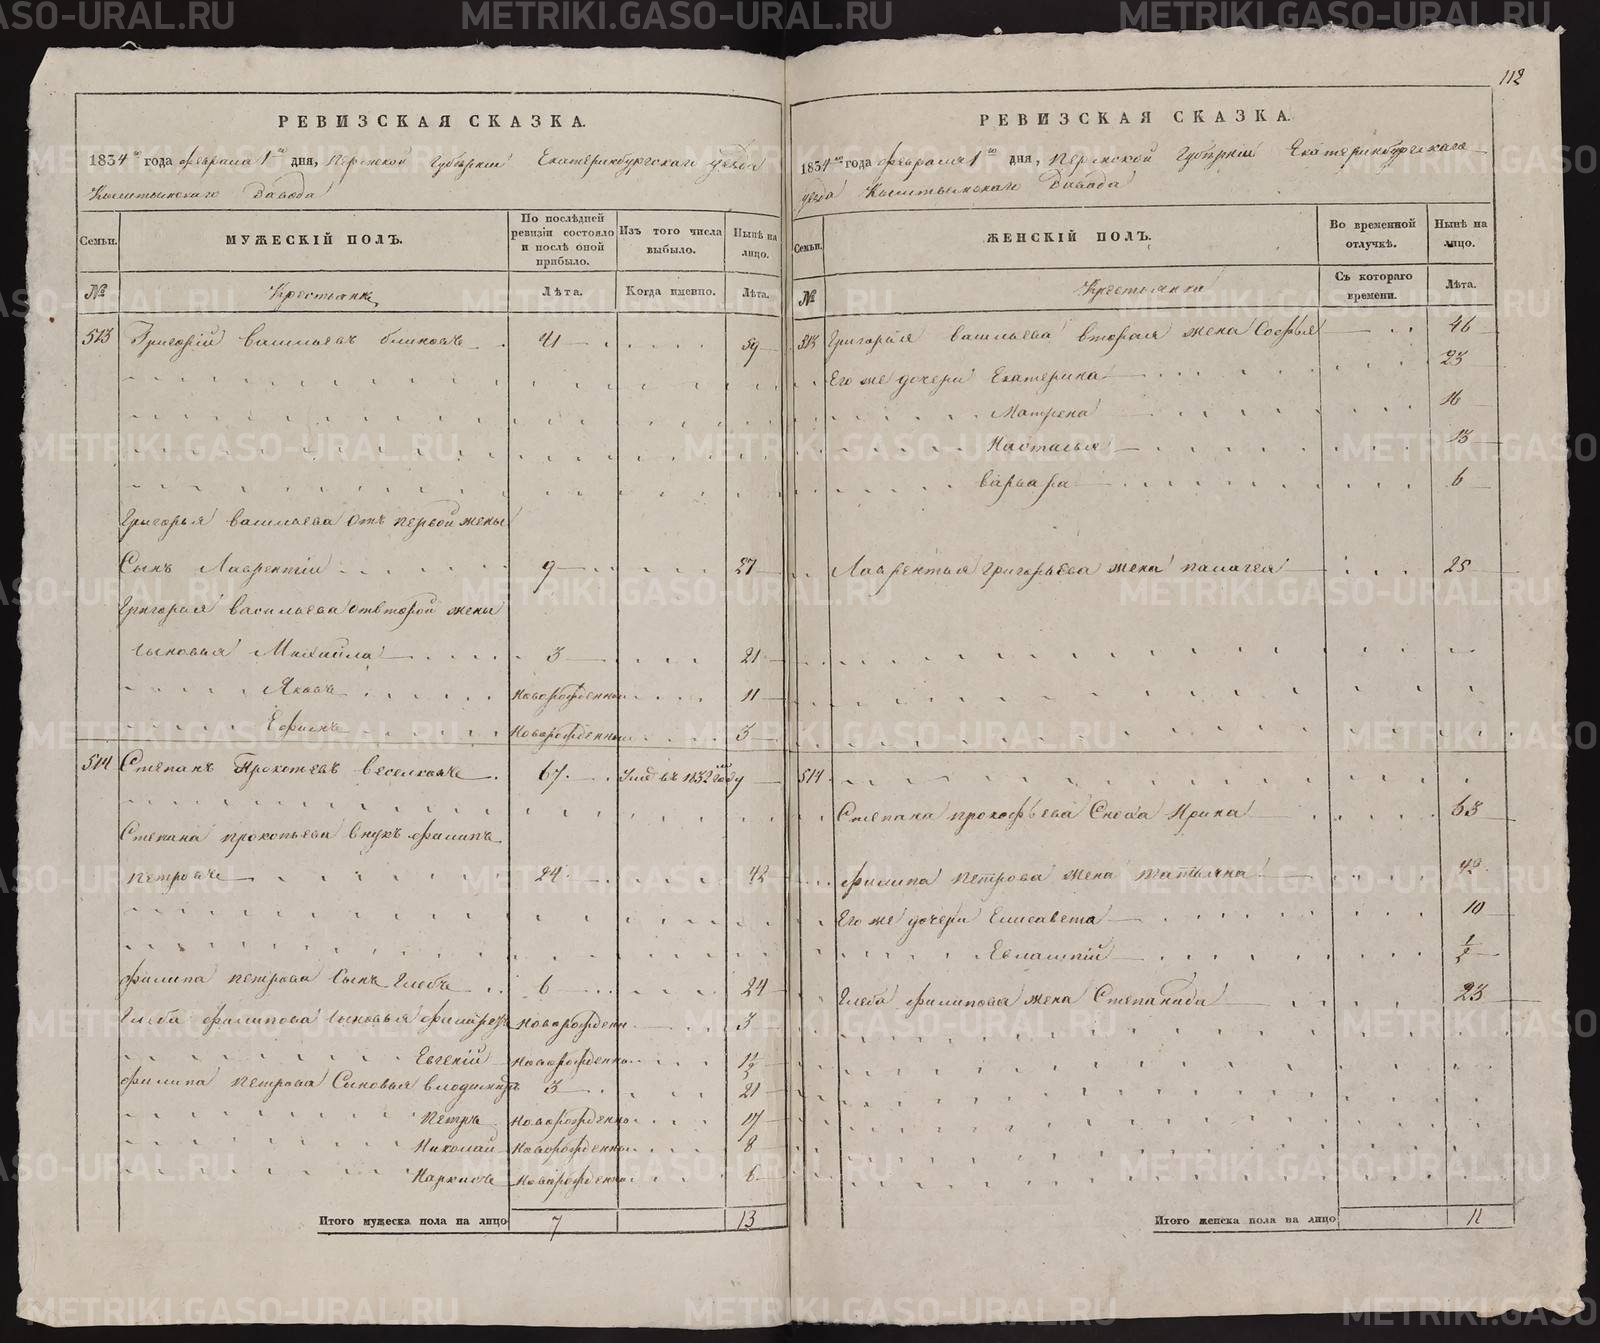 112
РЕВИЗСКАЯ СКАЗКА.
1834 го года февраля 1 го дня, Пермской Губернии Екатеринбургскаго уезда
Кыштымскаго Завода
Семьи.
МУЖЕСКІЙ ПОЛЪ.
По послѣдней ревизіи состояло и послѣ оной прибыло.
Изъ того числа выбыло.
Нынѣ на лицо.
№ Крестьяне Лѣта. Когда именно. Лѣта.
513 Григорій Васильевъ Блиновъ 41 59
Григорья Васильева отъ первой жены
Сынъ Лаврентій 9 27
Григорья Васильева отвторой жены
сыновья Михайла 3 21
Яковъ новорожденной 11
Ефимъ новорожденной 3
514 Степанъ Прокопьевъ Веселковъ 67 Умеръ въ 1832 году
Степана Прокопьева внукъ Филипъ
Петровъ 24 42
Филипа Петрова Сынъ Глебъ 6 24
Глеба Филипова сыновья новорожден 3
Евгеній новорожденно 1 1/2
Филипа Петрова Сыновья Владимиръ 3 21
Петръ новорожденно 17
Николай новорожденно 8
Наркисъ новорожденно 6
Итого мужеска пола на лицо 7 13
РЕВИЗСКАЯ СКАЗКА.
1834 го года февраля 1 го дня, Пермской Губерніи Екатеринбургскаго
уезда Кыштымскаго Завода
Семьи.
ЖЕНСКІЙ ПОЛЪ.
Во временной отлучкѣ.
Нынѣ на лицо.
№ Крестьянки Съ котораго времени. Лѣта.
513 Григорья Васильева вторая жена Софья 46
Его же дочери Екатерина 23
Матрена 16
Насталья 13
Варвара 6
Лаврентья Григорьева жена Палагея 25
514
Степана Прокофьева Сноха Ирина 63
Филипа Петрова жена Татьяна 42
Его же дочери Елисавета 10
1/2
Глеба Филипова жена Степанида 23
Итого женска пола на лицо 11
METRIKI.GASO-URAL.RU